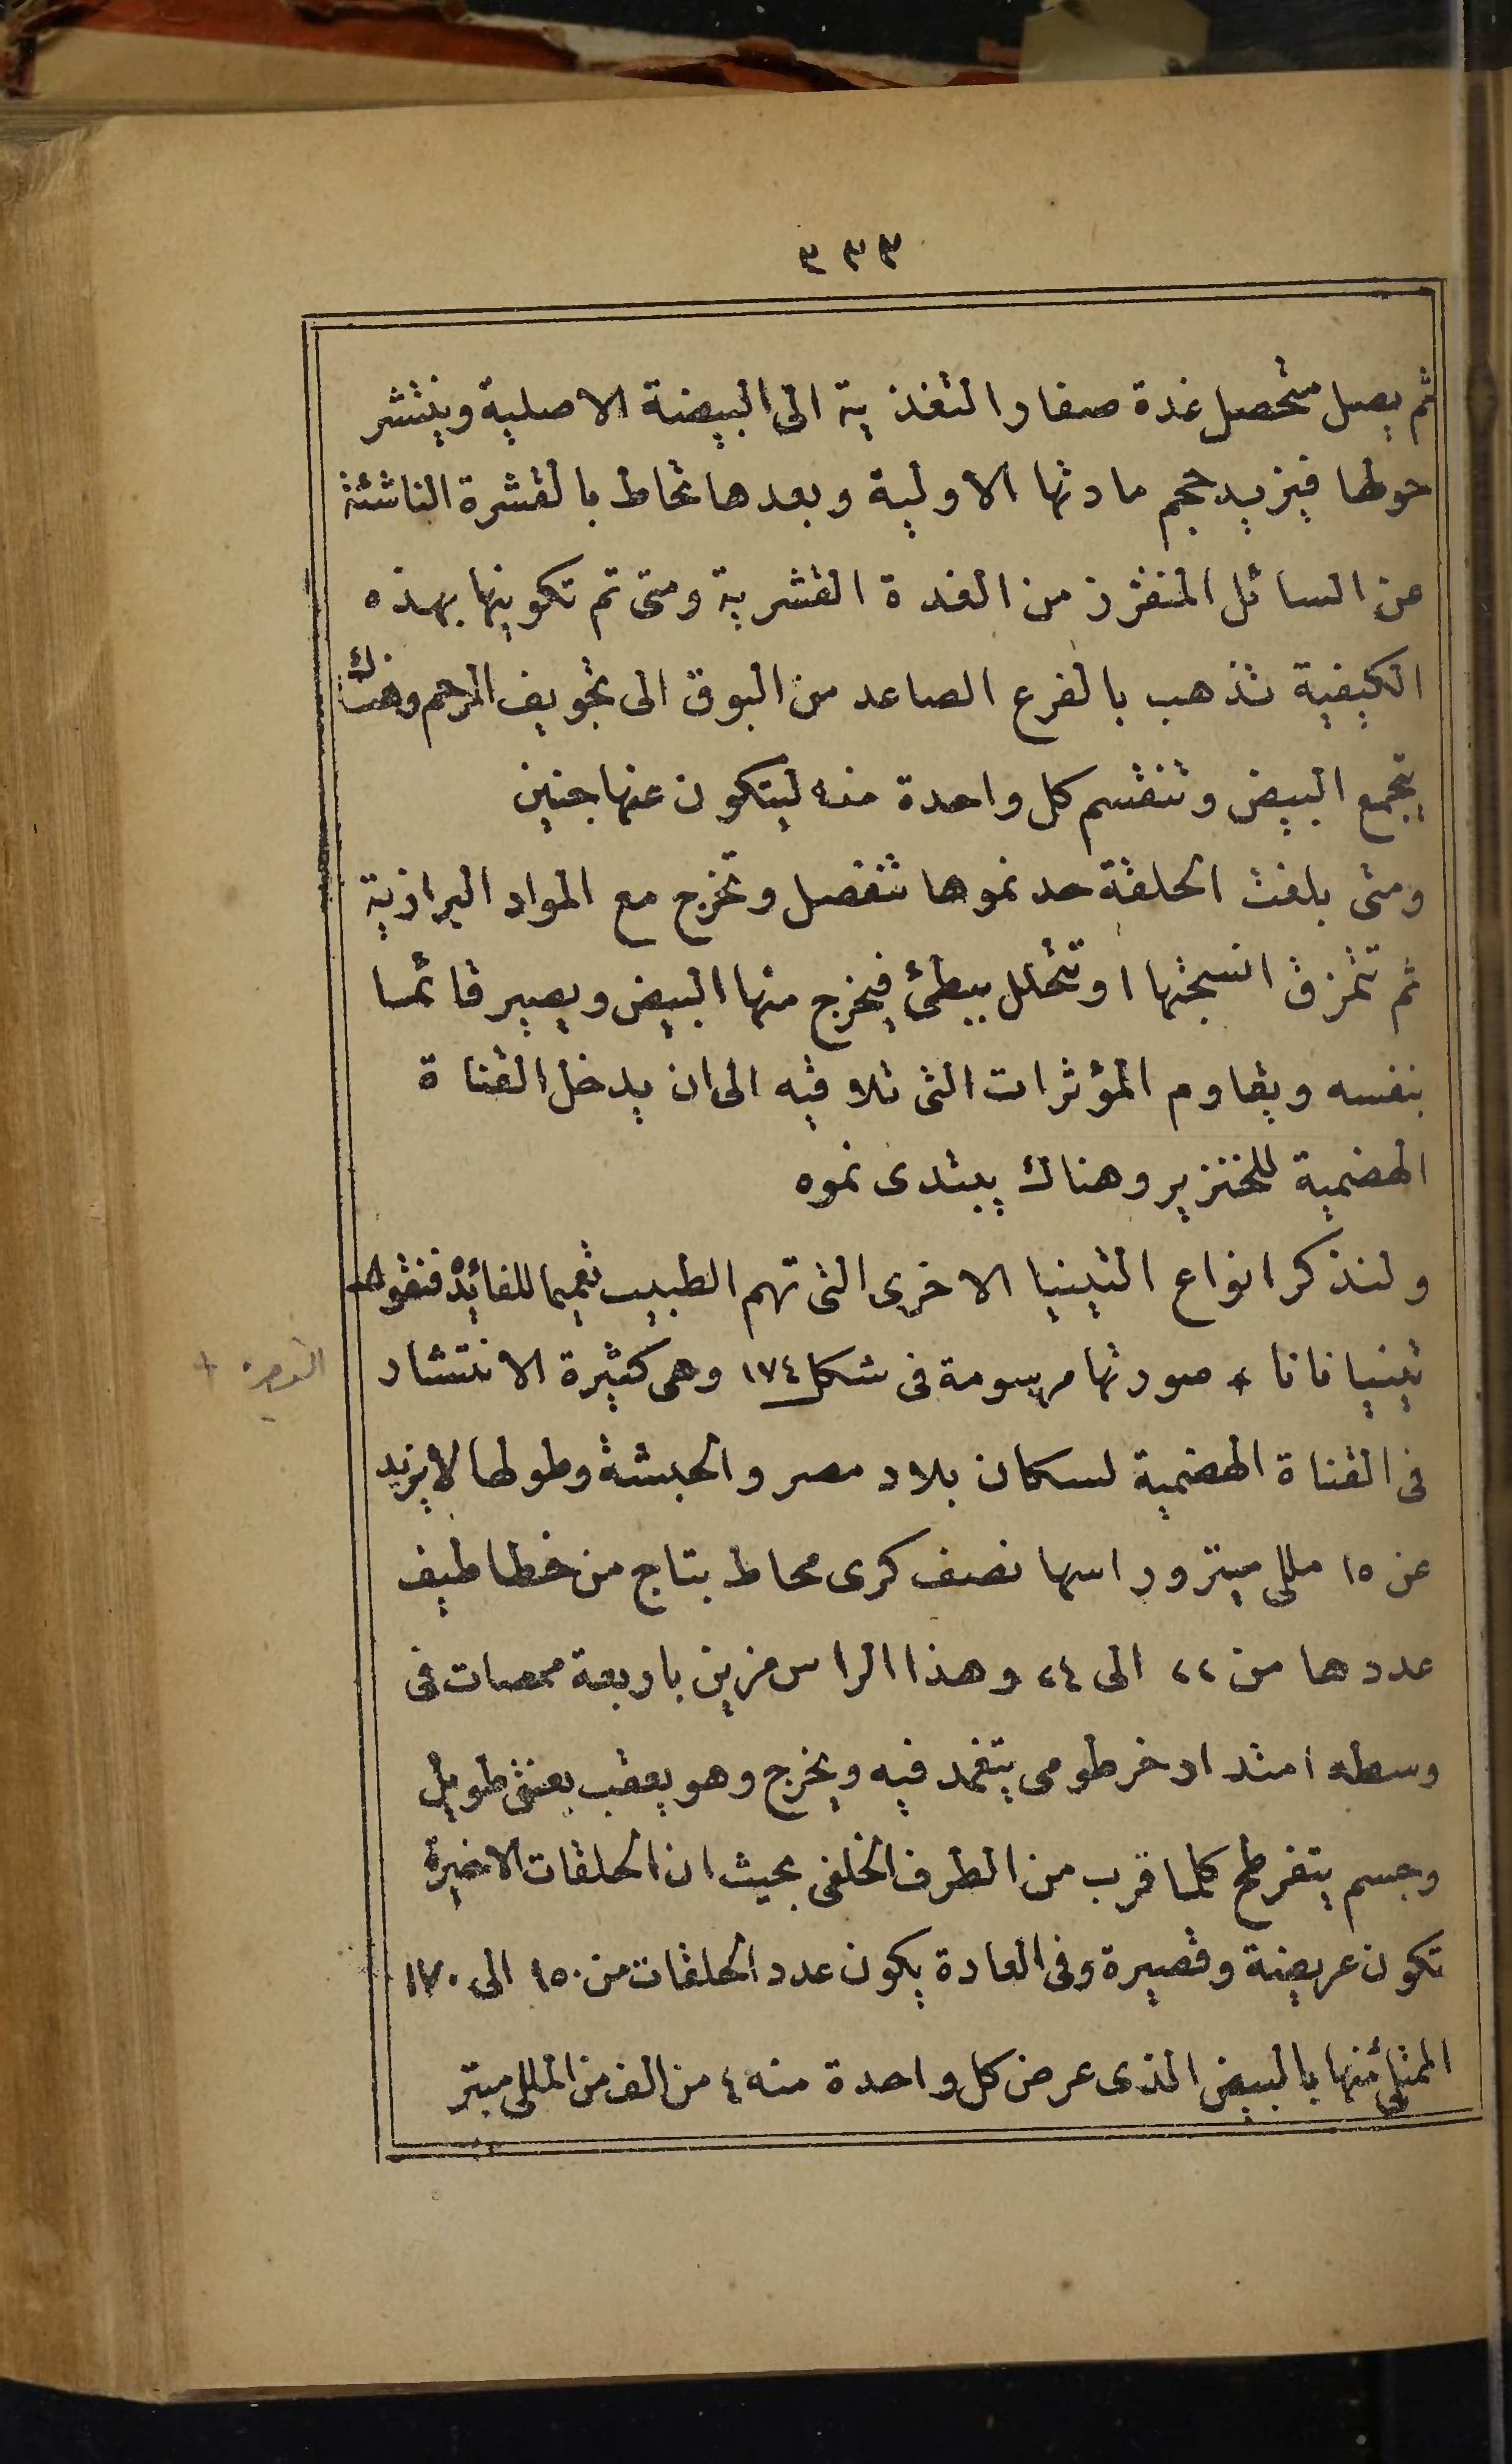 ٣٣٣
ثم يصل متحصل غدة صفار التغذية الى البيضة الاصلية وينتشر
حولها فيزيد حجم مادتها الاولية وبعدها تحاط بالقشرة الناشئة
عن السائل المنفرز من الغدة القشرية ومتى تم تكوينها بهذه
الكيفية تذهب بالفرع الصاعد من البوق الى تجويف الرحم وهناك
يتجمع البيض وتنقسم كل واحدة منه ليتكون عنها جنين
ومتى بلغت الحلقة حد نموها تنفصل وتخرج مع المواد البرازية
ثم تتمزق انسجتها او تتحلل ببطئ فيخرج منها البيض ويصير قائما
بنفسه ويقاوم المؤثرات التى تلاقيه الى ان يدخل القناة
الهضمية للخنزير وهناك يبتدى نموه
ولنذكر انواع التينيا الاخرى التى تهم الطبيب تعميما للفائدة فنقول
تينيا نانا + صورتها مرسومة فى شكل ١٧٤ وهى كثيرة الانتشار
+ القصيرة
فى القناة الهضمية لسكان بلاد مصر والحبشة وطولها لا يزيد
عن ١٥ مللى ميتر وراسها نصف كرى محاط بتاج من خطاطيف
عددها من ٢٢ الى ٢٤ وهذا الراس مزين باربعة ممصات فى
وسطه امتداد خرطومى يتغمد فيه ويخرج وهو يعقب بعنق طويل
وجسم يتفرطح كلما قرب من الطرف الخلفى بحيث ان الحلقات الاخيرة
تكون عريضة وقصيرة وفى العادة يكون عدد الحلقات من ١٥٠ الى ١٧٠
الممتلئ منها بالبيض الذى عرض كل واحدة منه ٤ من الف من المللى ميتر